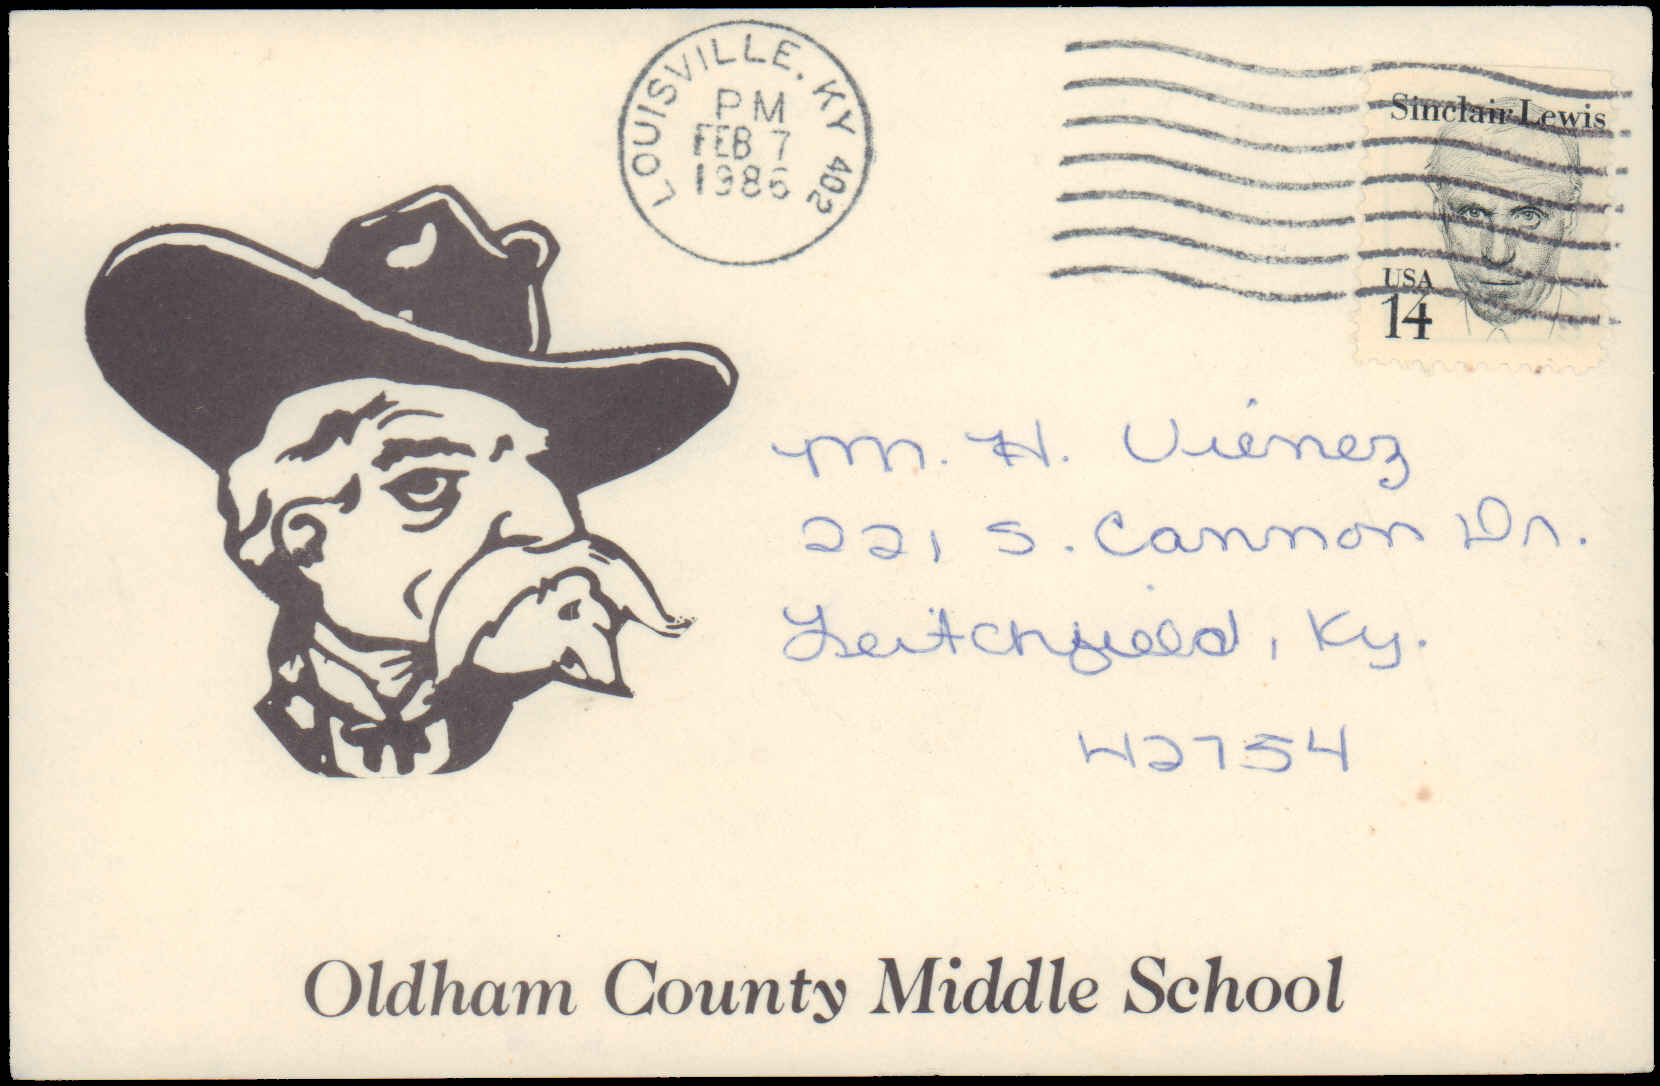 LOUISVILLE, KY 402
PM
FEB 7
1986
Sinclair Lewis
USA
14
Mr. H. Vienez
221 S. Cannon Dr.
Leitchfield, Ky.
42754
Oldham County Middle School